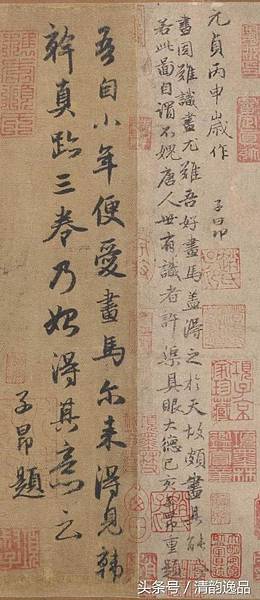 元貞丙申歲作 子昂
畫固難識畫尤難吾好畫馬蓋得之於天故頗盡其能事
若此圖自謂不媿唐人世有識者許渠具眼大德己亥子昂重題
吾自小年便愛畫馬尔來得見韓
幹真跡三卷乃始得其意云
子昂題
項子京家珍藏
头条号 / 清韵逸品